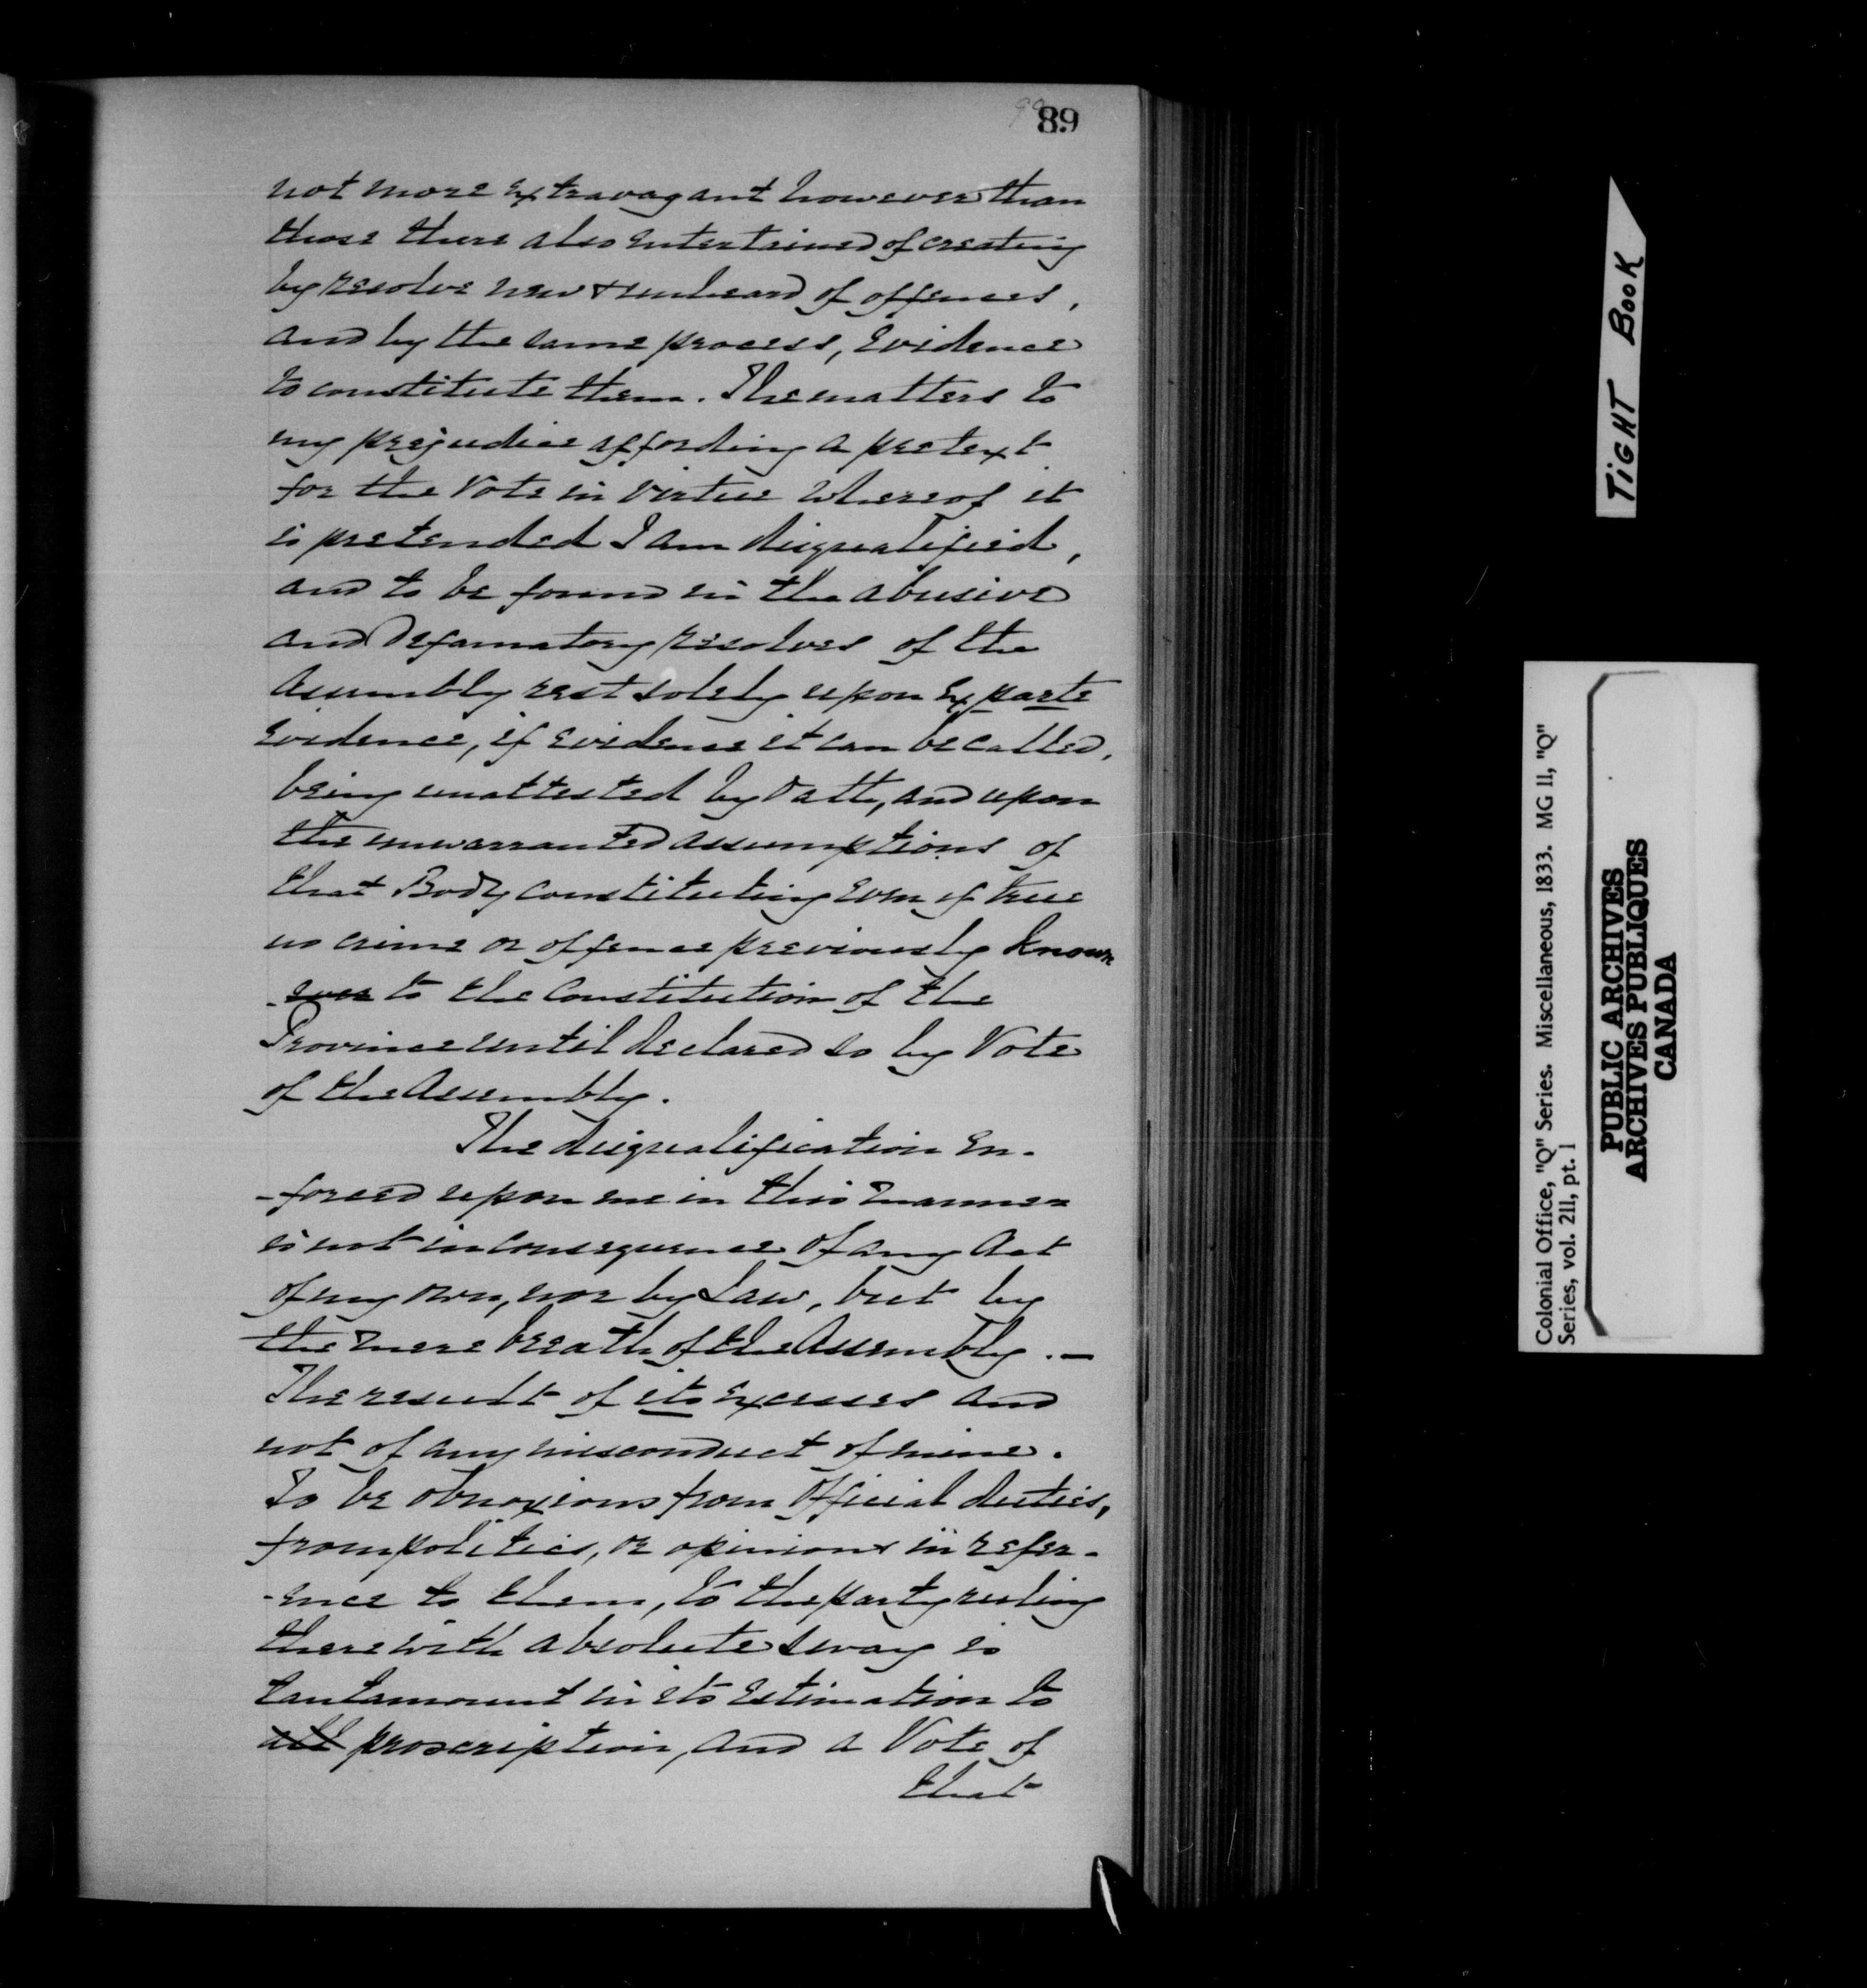 89
not more extravagant however than
those there also entertained of creating
by resolve new & unheard of offences,
and by the same process, Evidence
to constitute them. The matters to
my prejudice affording a pretext
for the Vote in virtue whereof it
is pretended I am disqualified,
and to be found in the abusive
and defamatory resolves of the
Assembly rest solely upon Ex parte
Evidence, if Evidence it can be called,
being unattested by Oath, and upon
the unwarranted assumptions of
that Body constituting even if true
no crime or offence previously known
to the Constitution of the
Province until declared so by Vote
of the Assembly.
The disqualification En-
-forced upon me in this manner
is not in Consequence of any Act
of my own, nor by Law, but by
the mere breath of the Assembly. —
The result of its Excesses and
not of any misconduct of mine.
To be obnoxious from Official duties,
from politics, or opinions in refer-
-ence to them, to the party ruling
there with absolute sway is
tantamount in its Estimation to
all proscription, and a Vote of
that
TIGHT BOOK
Colonial Office, "Q" Series. Miscellaneous, 1833. MG 11, "Q"
Series, vol. 211, pt. 1
PUBLIC ARCHIVES
ARCHIVES PUBLIQUES
CANADA